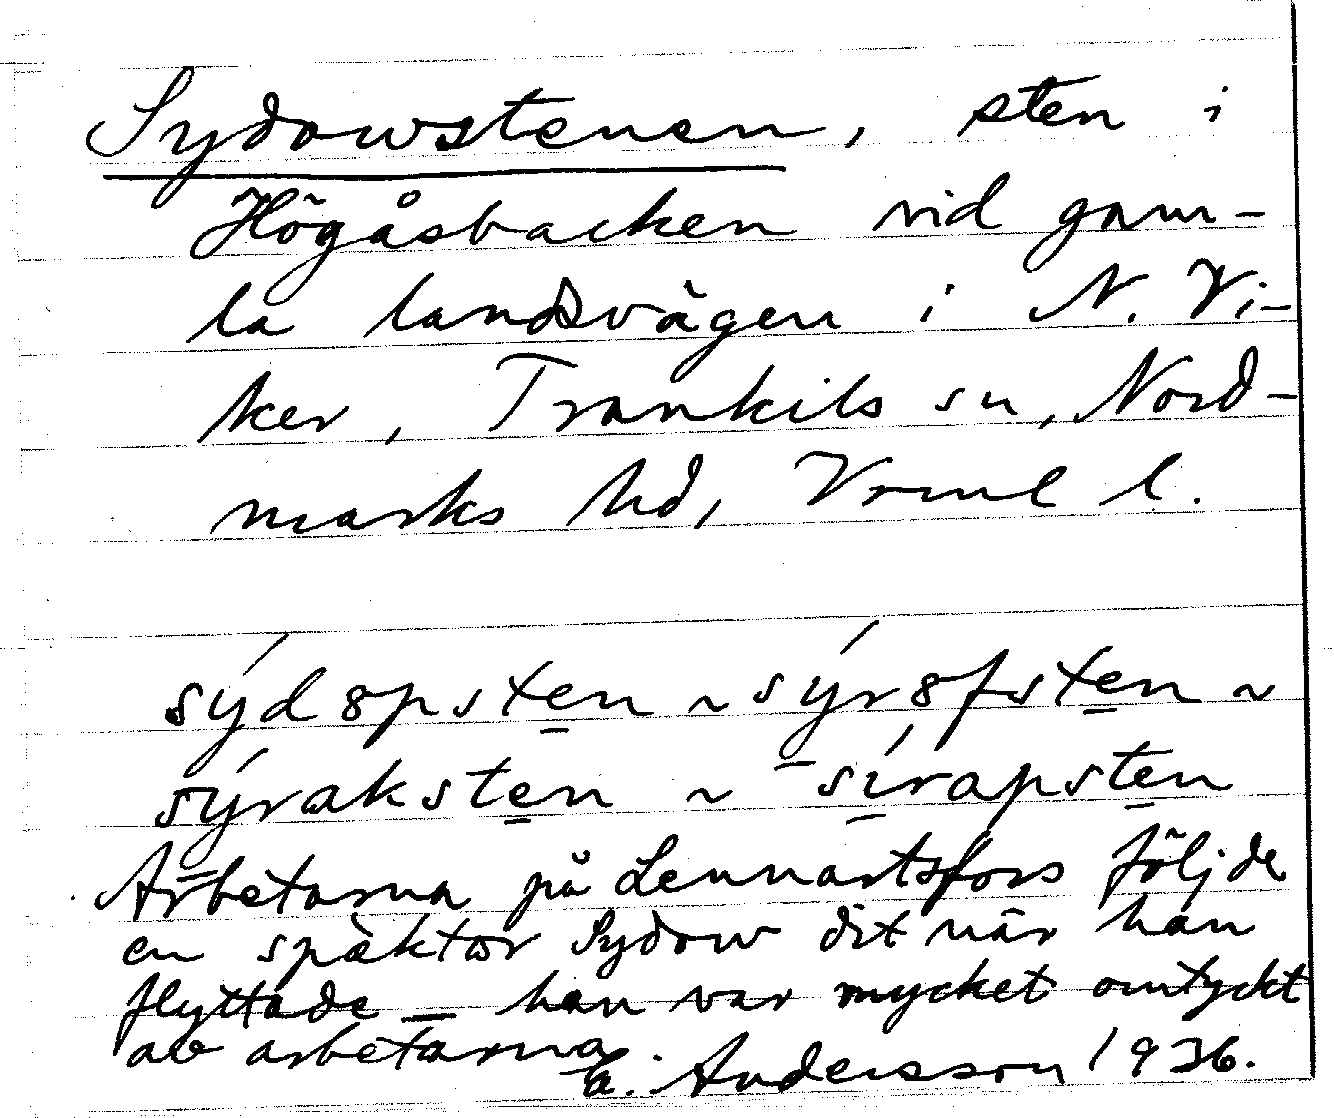 Sydowstenen, sten i
Högåsbacken vid gam-
la landsvägen i N. Vi-
ker, Trankils sn, Nord-
marks hd, Vrml l.
sýdɞpsten ~ sýrɞfsten ~
sýraksten ~ sírapsten
Arbetarna på Lennartsfors följde
en späktor Sydow dit när han
flyttade — han var mycket omtyckt
av arbetarna.
E. Andersson 1936.